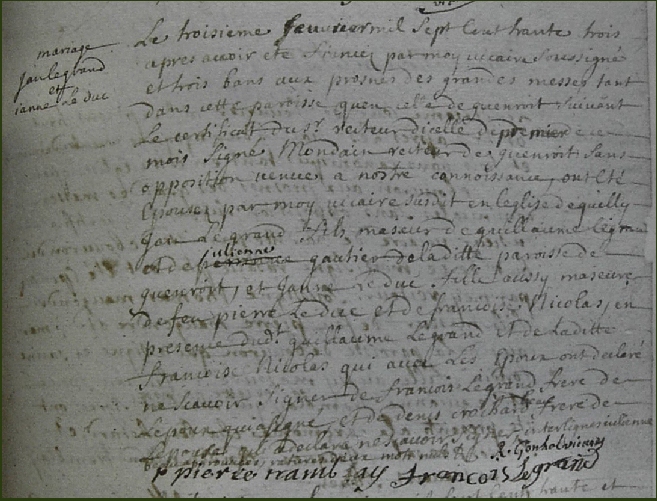 mariage
Jan legrand
et
janne le duc
Le troisieme feuvrier mil Sept Cent trante trois
apres avoir été fiancez par moy vicaire soussigné
et trois bans aux prosnes des grandes messes tant
dans cette paroisse quen celle de quenroit suivant
le certificat du sr. recteur dicelle du premier
mois Signé Mondain recteur de quenroit Sans
opposition venüe a nostre connoissance, ont été
Epousez par moy vicaire susdit en leglise de quilly
Jan Legrand fils maseur de guillaume legrand
julienne
et de gautier de laditte paroisse de
quenroit, et Janne le duc fille aussy maseure
de feu pierre Le duc et de francoise Nicolas, en
presence dudt. guillaume Legrand et de laditte
francoise Nicolas qui avec Les Epoux ont declaré
ne scavoir Signer de francois Legrand frere de
Lepoux qui signe, et de denis crochard frere de
Lepouse qui a declaré ne scavoir interligne julienne
mot
pierre tramblay francois Le grand